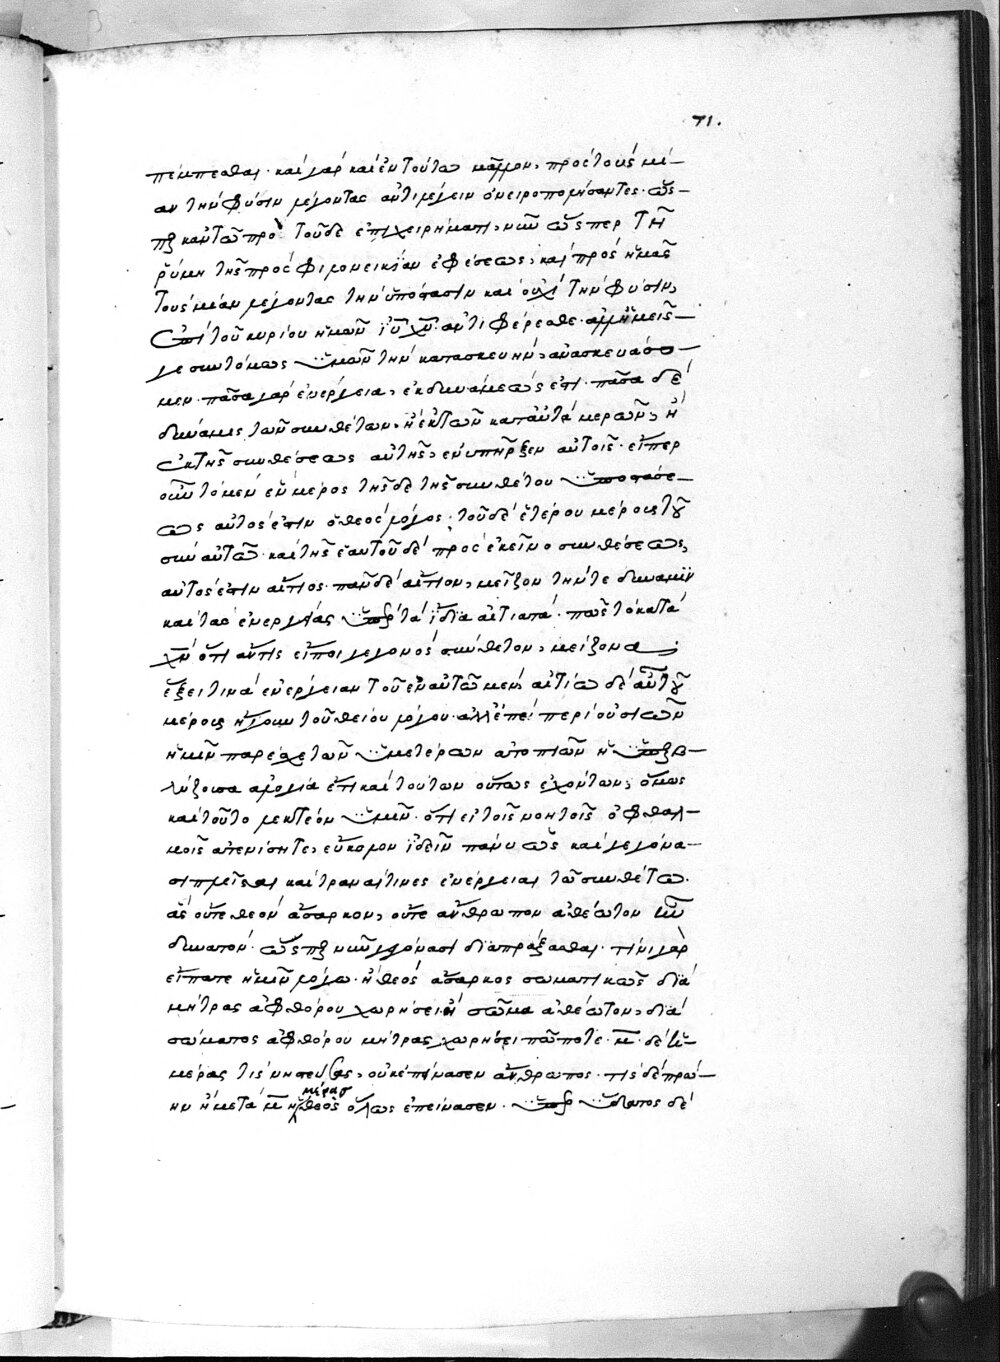 71.
πέμπεσθαι· καὶ γὰρ καὶ ἐν τούτω μᾶλλον, πρὸς τοὺς μί-
αν τὴν φύσιν λέγοντας ἀντιλέγειν ὀνειροπολήσαντες· ὡς-
περ κἀν τῶ πρὸ τοῦδε ἐπιχειρήματι, νῦν ὥσπερ τῆ
ῥύμη τῆς πρὸς φιλονεικίαν ἐφέσεως, καὶ πρὸς ἡμᾶς
τοὺς μίαν λέγοντας τὴν ὑπόστασιν καὶ οὐχὶ τὴν φύσιν,
ἐπὶ τοῦ κυρίου ἡμῶν ἰῦ χῦ ἀντιφέρεσθε· ἀλλ' ἡμεῖς-
γε συντόμως ὑμῶν τὴν κατασκευὴν, ἀνασκευάσο-
μεν· πᾶσα γὰρ ἐνέργεια, ἐκ δυνάμεώς ἐστι· πᾶσα δὲ
δύναμις τῶν συνθέτων, ἢ ἐκ τῶν κατ' αὐτὰ μερῶν, ἢ
ἐκ τῆς συνθέσεως αὐτῆς, ἐνυπῆρξεν αὐτοῖς· εἴπερ
οὖν τὸ μὲν ἓν μέρος τῆσδε τῆς συνθέτου ὑποστάσε-
ως αὐτός ἐστιν ὁ θεὸς λόγος· τοῦ δὲ ἑτέρου μέρους τοῦ
σὺν αὐτῶ· καὶ τῆς ἑαυτοῦ δὲ πρὸς ἐκεῖνο συνθέσεως,
αὐτός ἐστιν αἴτιος· πᾶν δὲ αἴτιον, μεῖζον τήν τε δύναμιν
καὶ τὰς ἐνεργείας ὑπὲρ τὰ ἴδια αἰτιατά· πῶς τὸ κατὰ
χν ὅτι ἄν τις εἴποι γεγονὸς σύνθετον, μείζονα
ἕξει τινὰ ἐνέργειαν τοῦ ἐν αὐτῶ μὲν, αἰτίω δὲ αὐτοῦ
μέρους ἤγουν τοῦ θείου λόγου· ἀλλ' ἐπεὶ περιουσιῶν
ἡμῖν παρέσχε τῶν ὑμετέρων ἀτοπιῶν ἡ ὑπερβ-
λύζουσα ἀλογία ἔτι καὶ τούτων οὕτως ἐχόντων, ὅμως
καὶ τοῦτο λεκτέον ὑμῖν· ὅτι εἰ τοῖς νοητοῖς ὀφθαλ-
μοῖς ἀτενίσητε, εὔκολον ἰδεῖν πάνυ ὡς καὶ γεγόνα-
σι πλεῖσται καὶ τραναί τινες ἐνέργειαι τῶ συνθέτω·
ἃς οὔτε θεὸν ἄσαρκον, οὔτε ἄνθρωπον ἀθέωτον ἦν
δυνατόν· ὥσπερ νῦν γεγόνασι διαπράξασθαι· τίνι γὰρ
εἴπατε ἡμῖν λόγω· ἢ θεὸς ἄσαρκος σωματικῶς διὰ
μήτρας ἀφθόρου χωρήσει· ἢ σῶμα ἀθέωτον, διὰ
σώματος ἀφθόρου μήτρας χωρήσει πώποτε· μ δὲ ἡ-
μέρας τις νηστεύσας, οὐκ ἐπείνασεν ἄνθρωπος· τίς δὲ πρώ-
ην ἢ μετὰ μ ἡμέρας θεὸς ὅλως ἐπείνασεν· ὑπὲρ ὕδατος δὲ